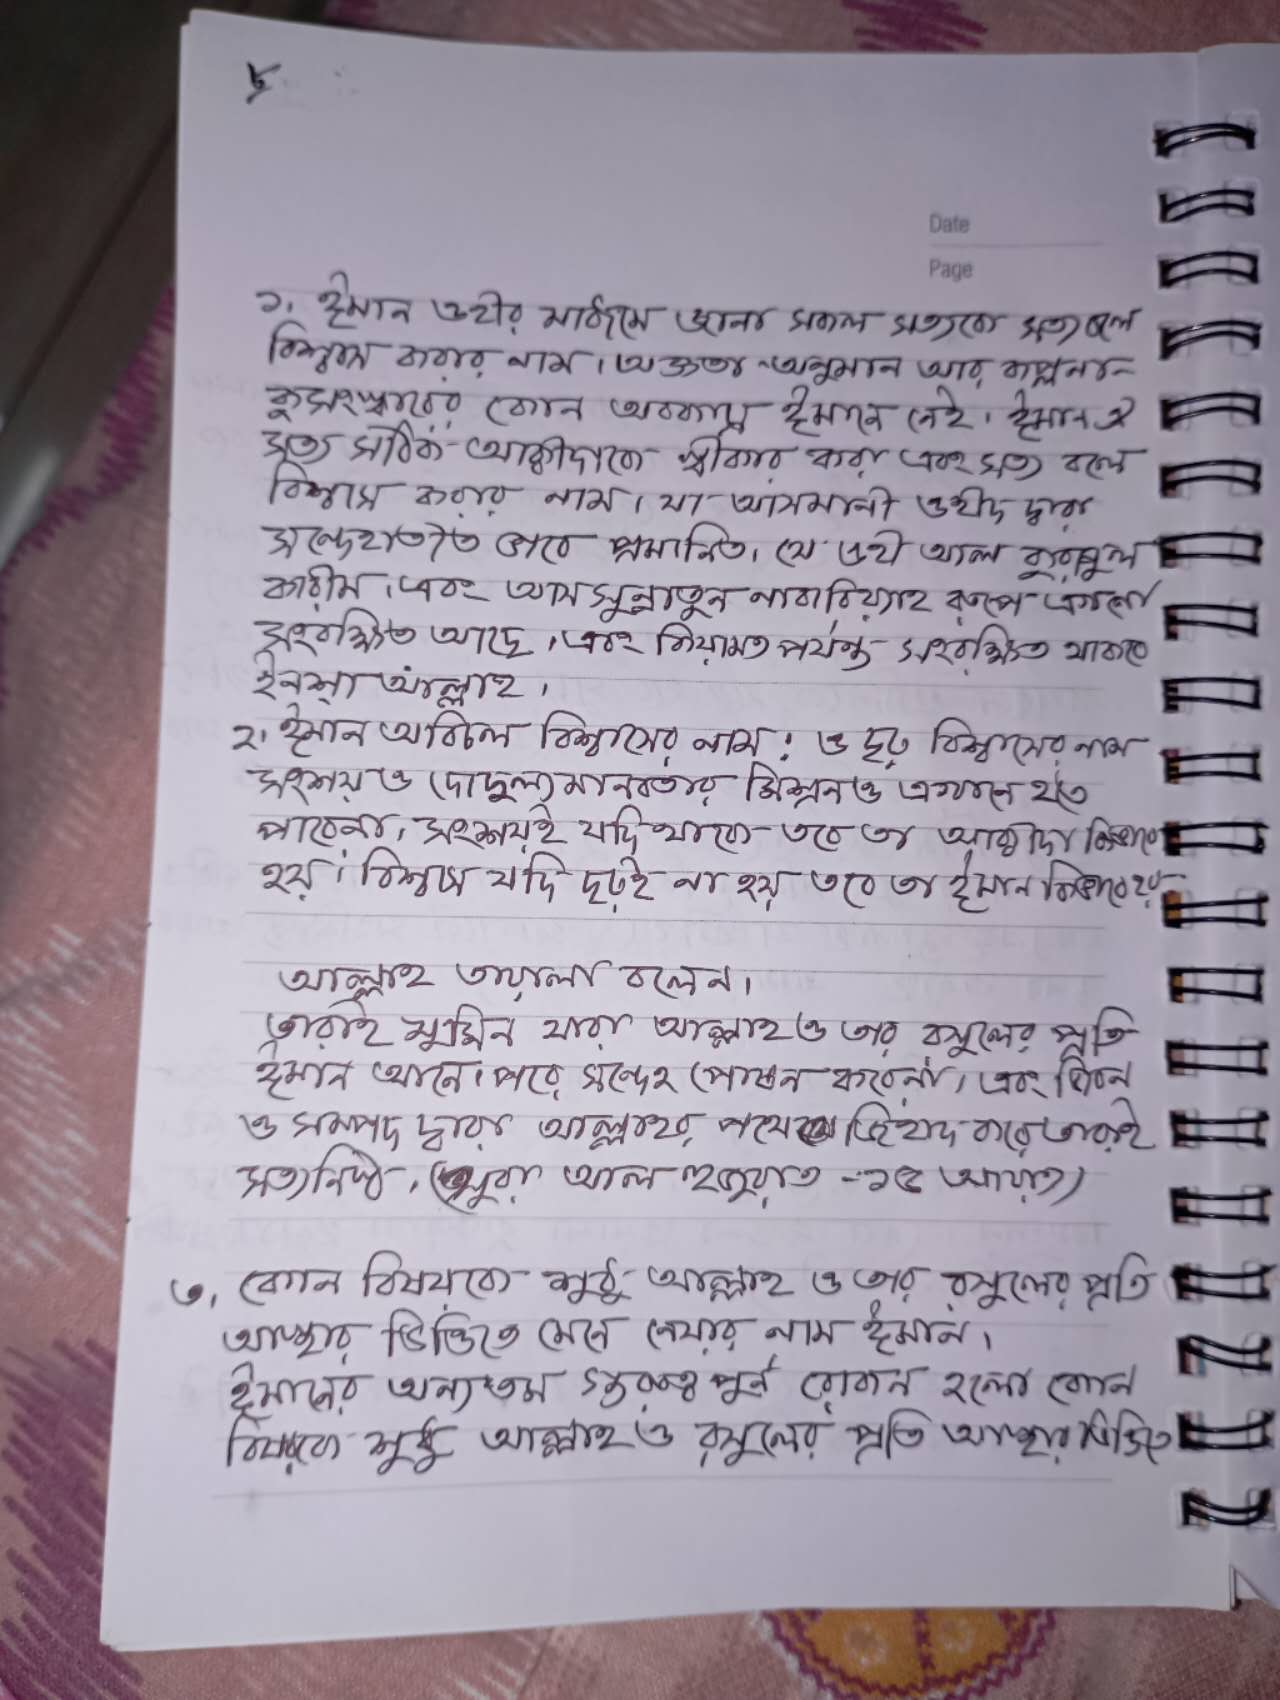 ৮
Date
Page
১. ঈমান ওহীর মাধ্যমে জানা সকল সত্যকে সত্য বলে
বিশ্বাস করার নাম। অজ্ঞতা-অনুমান আর কল্পনা-
কুসংস্কারের কোন অবকাশ ঈমানে নেই। ঈমান ঐ
সত্য সঠিক আক্বীদাকে স্বীকার করা এবং সত্য বলে
বিশ্বাস করার নাম। যা আসমানী ওহীদ দ্বারা
সন্দেহাতীত ভাবে প্রমানিত। যে ওহী আল কুরআনুল
কারীম। এবং আস সুন্নাতুন নাবাবিয়্যাহ রূপে এখনো
সংরক্ষিত আছে। এবং কিয়ামত পর্যন্ত সংরক্ষিত থাকবে
ইনশা আল্লাহ।
২. ঈমান অবিচল বিশ্বাসের নাম। ও দৃঢ় বিশ্বাসের নাম
সংশয় ও দোদুল্যমানবতার মিশ্রনও এখানে হতে
পারেনা। সংশয়ই যদি থাকে তবে তা আক্বিদা কিভাবে
হয়। বিশ্বাস যদি দৃঢ়ই না হয় তবে তা ঈমান কিভাবে হয়
আল্লাহ তায়ালা বলেন।
তারাই মুমিন যারা আল্লাহ ও তার রসুলের প্রতি
ঈমান আনে। পরে সন্দেহ পোষন করেনা। এবং জিবন
ও সম্পদ দ্বারা আল্লাহর পথে জিহাদ করে তারাই
সত্যনিষ্ঠ। (সুরা আল হুজুরাত -১৫ আয়াত)
৩. কোন বিষয়কে শুধু আল্লাহ ও তার রসুলের প্রতি
আস্থার ভিত্তিতে মেনে নেয়ার নাম ঈমান।
ঈমানের অন্যতম গুরুত্বপূর্ন রোকন হলো কোন
বিষয়কে শুধু আল্লাহ ও রসুলের প্রতি আস্থার ভিত্তিতে